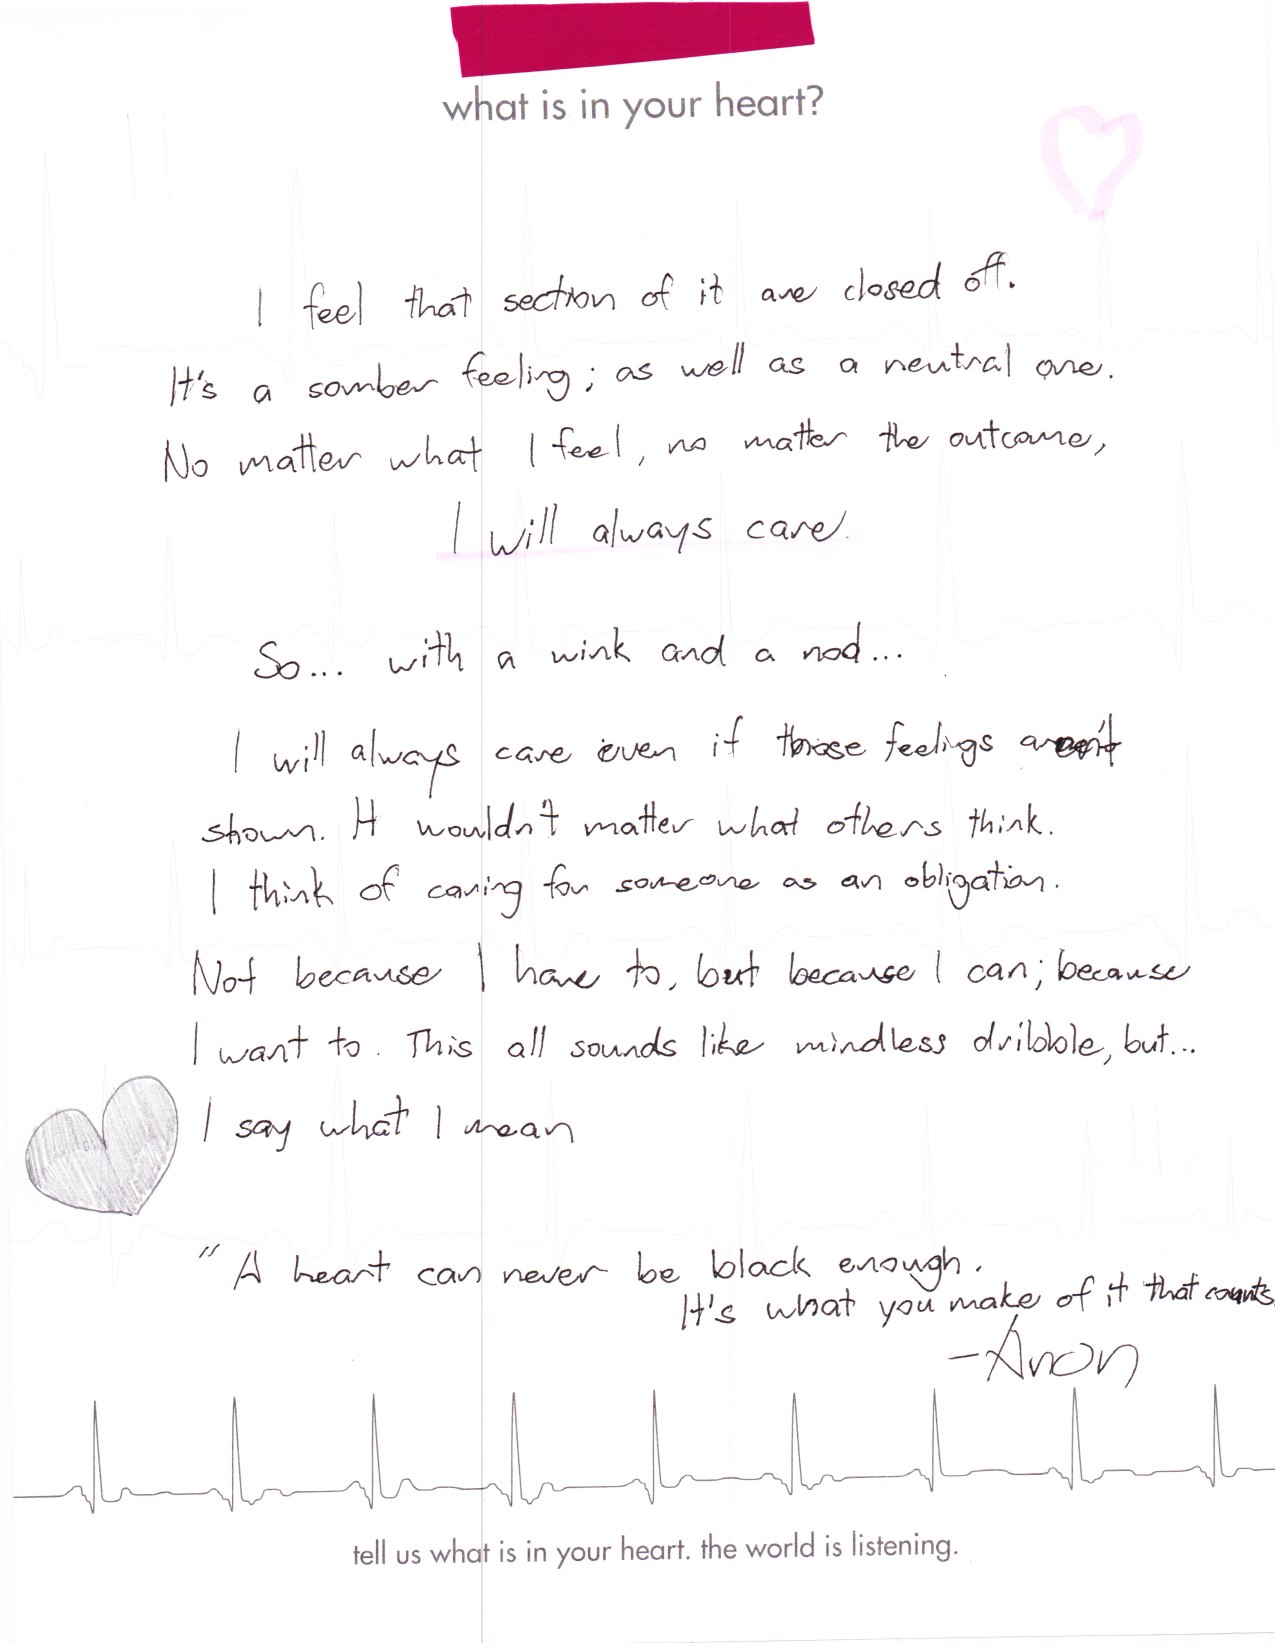 what is in your heart?
I feel that section of it are closed off.
It's a somber feeling; as well as a neutral one.
No matter what I feel, no matter the outcome,
I will always care.
So... with a wink and a nod...
I will always care even if those feelings aren't
shown. It wouldn't matter what others think.
I think of caring for someone as an obligation.
Not because I have to, but because I can; because
I want to. This all sounds like mindless dribble, but...
I say what I mean
" A heart can never be black enough.
It's what you make of it that counts
- Anon
tell us what is in your heart. the world is listening.